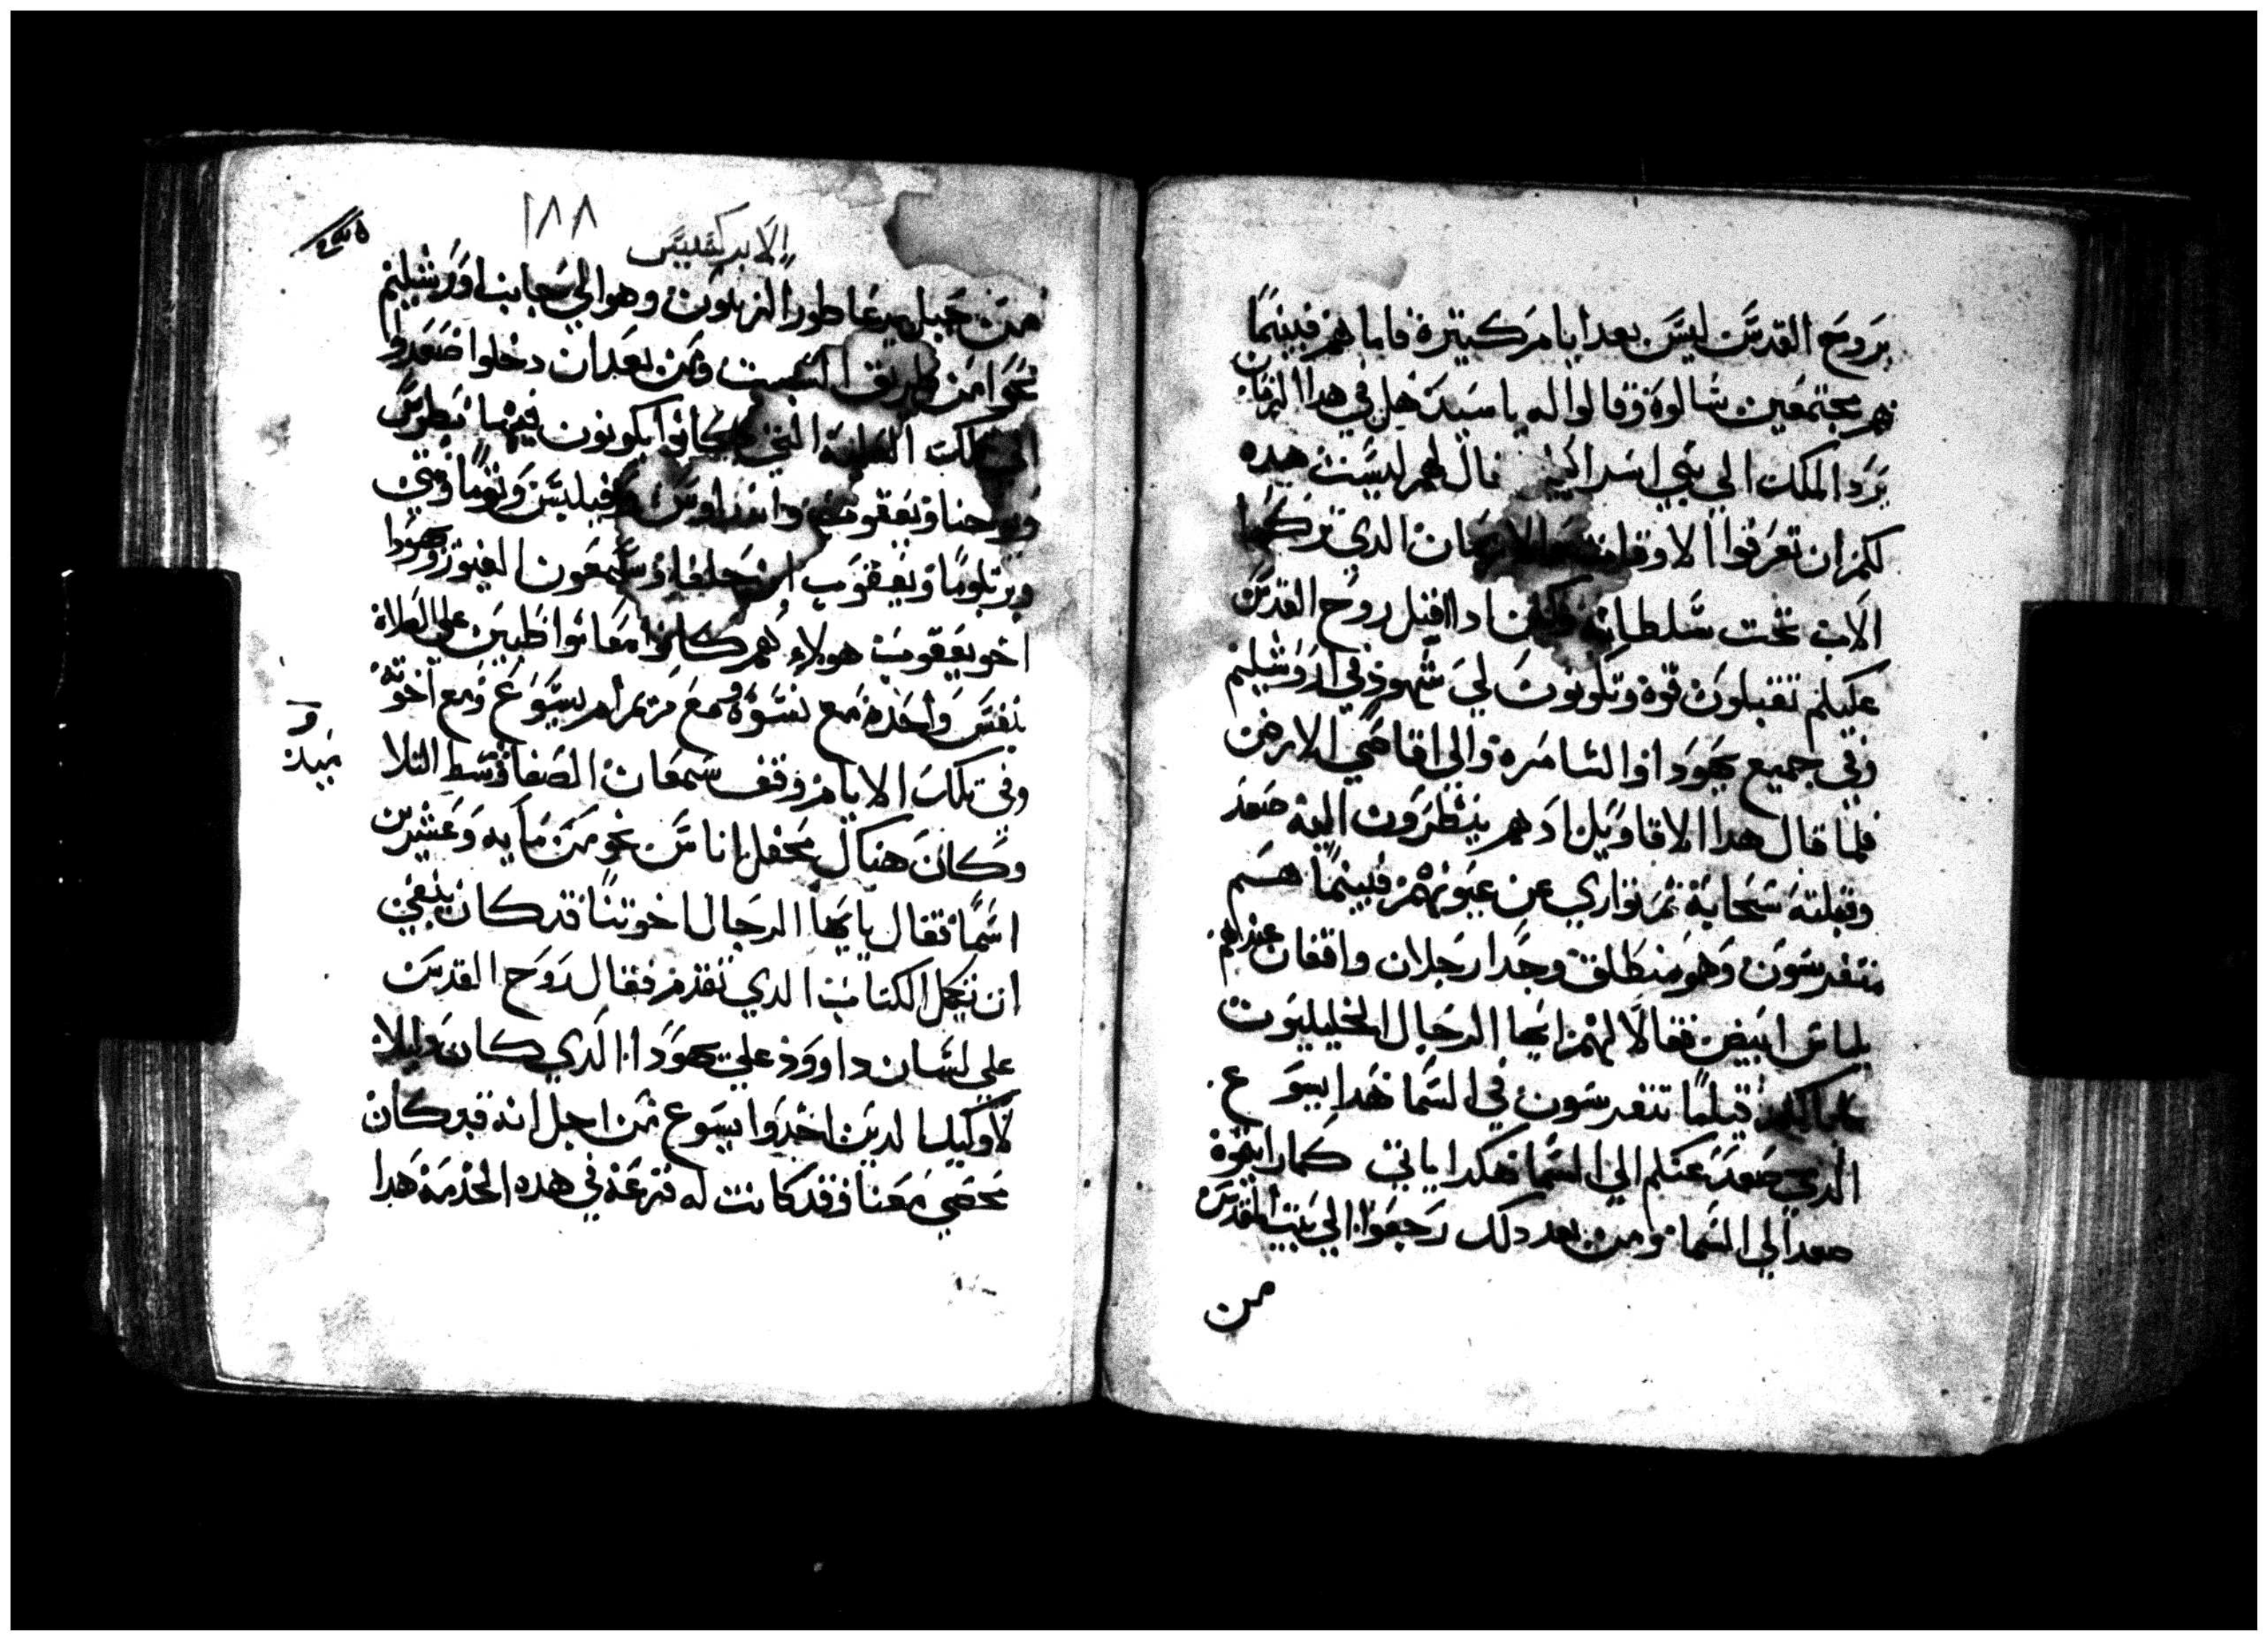 بروح القدس ليس بعد ايام كثيرة فاما هم فبينما
هم مجتمعين سالوه وقالوا له يا سيد هل في هدا الزمان
يرد الملك الي بني اسراييل قال لهم ليست هده
لكم ان تعرفوا الاوقات الازمان الدي تركها
الاب تحت سلطانه لكن ادا اقبل روح القدس
عليكم تقبلون قوة وتكونون لي شهود في اورشليم
وفي جميع يهودا والسامره والي اقاصي الارض
فلما قال هدا الاقاويل اد هم ينظرون اليه صعد
وقبلته سحابة ثم تواري عن عيونهم فبينما هم
متفرسون وهو منطلق وجدا رجلان واقفان عندهم
بلباس ابيض فقالا لهم ايها الرجال الجليليون
قياما تتفرسون في السما هدا يسوع
الدي صعد عنكم الي السما هكدا ياتي كما رايتموه
صعد الي السما ومن بعد دلك رجعوا الي بيت المقدس
من
١٨٨
الابركسيس
من جبل يدعا طور الزيتون وهو الي جانب اورشليم
نحوا من طريق السبت ومن بعد ان دخلوا صعدوا
الي تلك العلية التي كانوا يكونون فيها بطرس
ويوحنا ويعقوب واندراوس وفيلبس وتوما ومتي
وبرتلوما ويعقوب ابن حلفا وسمعون الغيور ويهودا
اخو يعقوب هولاء كلهم كانوا معا مواظبين علي الصلاة
بنفس واحدة مع نسوة ومع مريم ام يسوع ومع اخوته
وفي تلك الايام وقف سمعان الصفا وسط التلا
ميد
وكان هناك محفل اناس نحو من مايه وعشرين
اسما فقال يا ايها الرجال اخوتنا قد كان ينبغي
ان يكمل الكتاب الدي تقدم فقال روح القدس
علي لسان داوود علي يهودا الدي كان دليلا
للدين اخدوا يسوع من اجل انه قد كان
محصي معنا وقد كانت له قرعة في هده الخدمة هدا